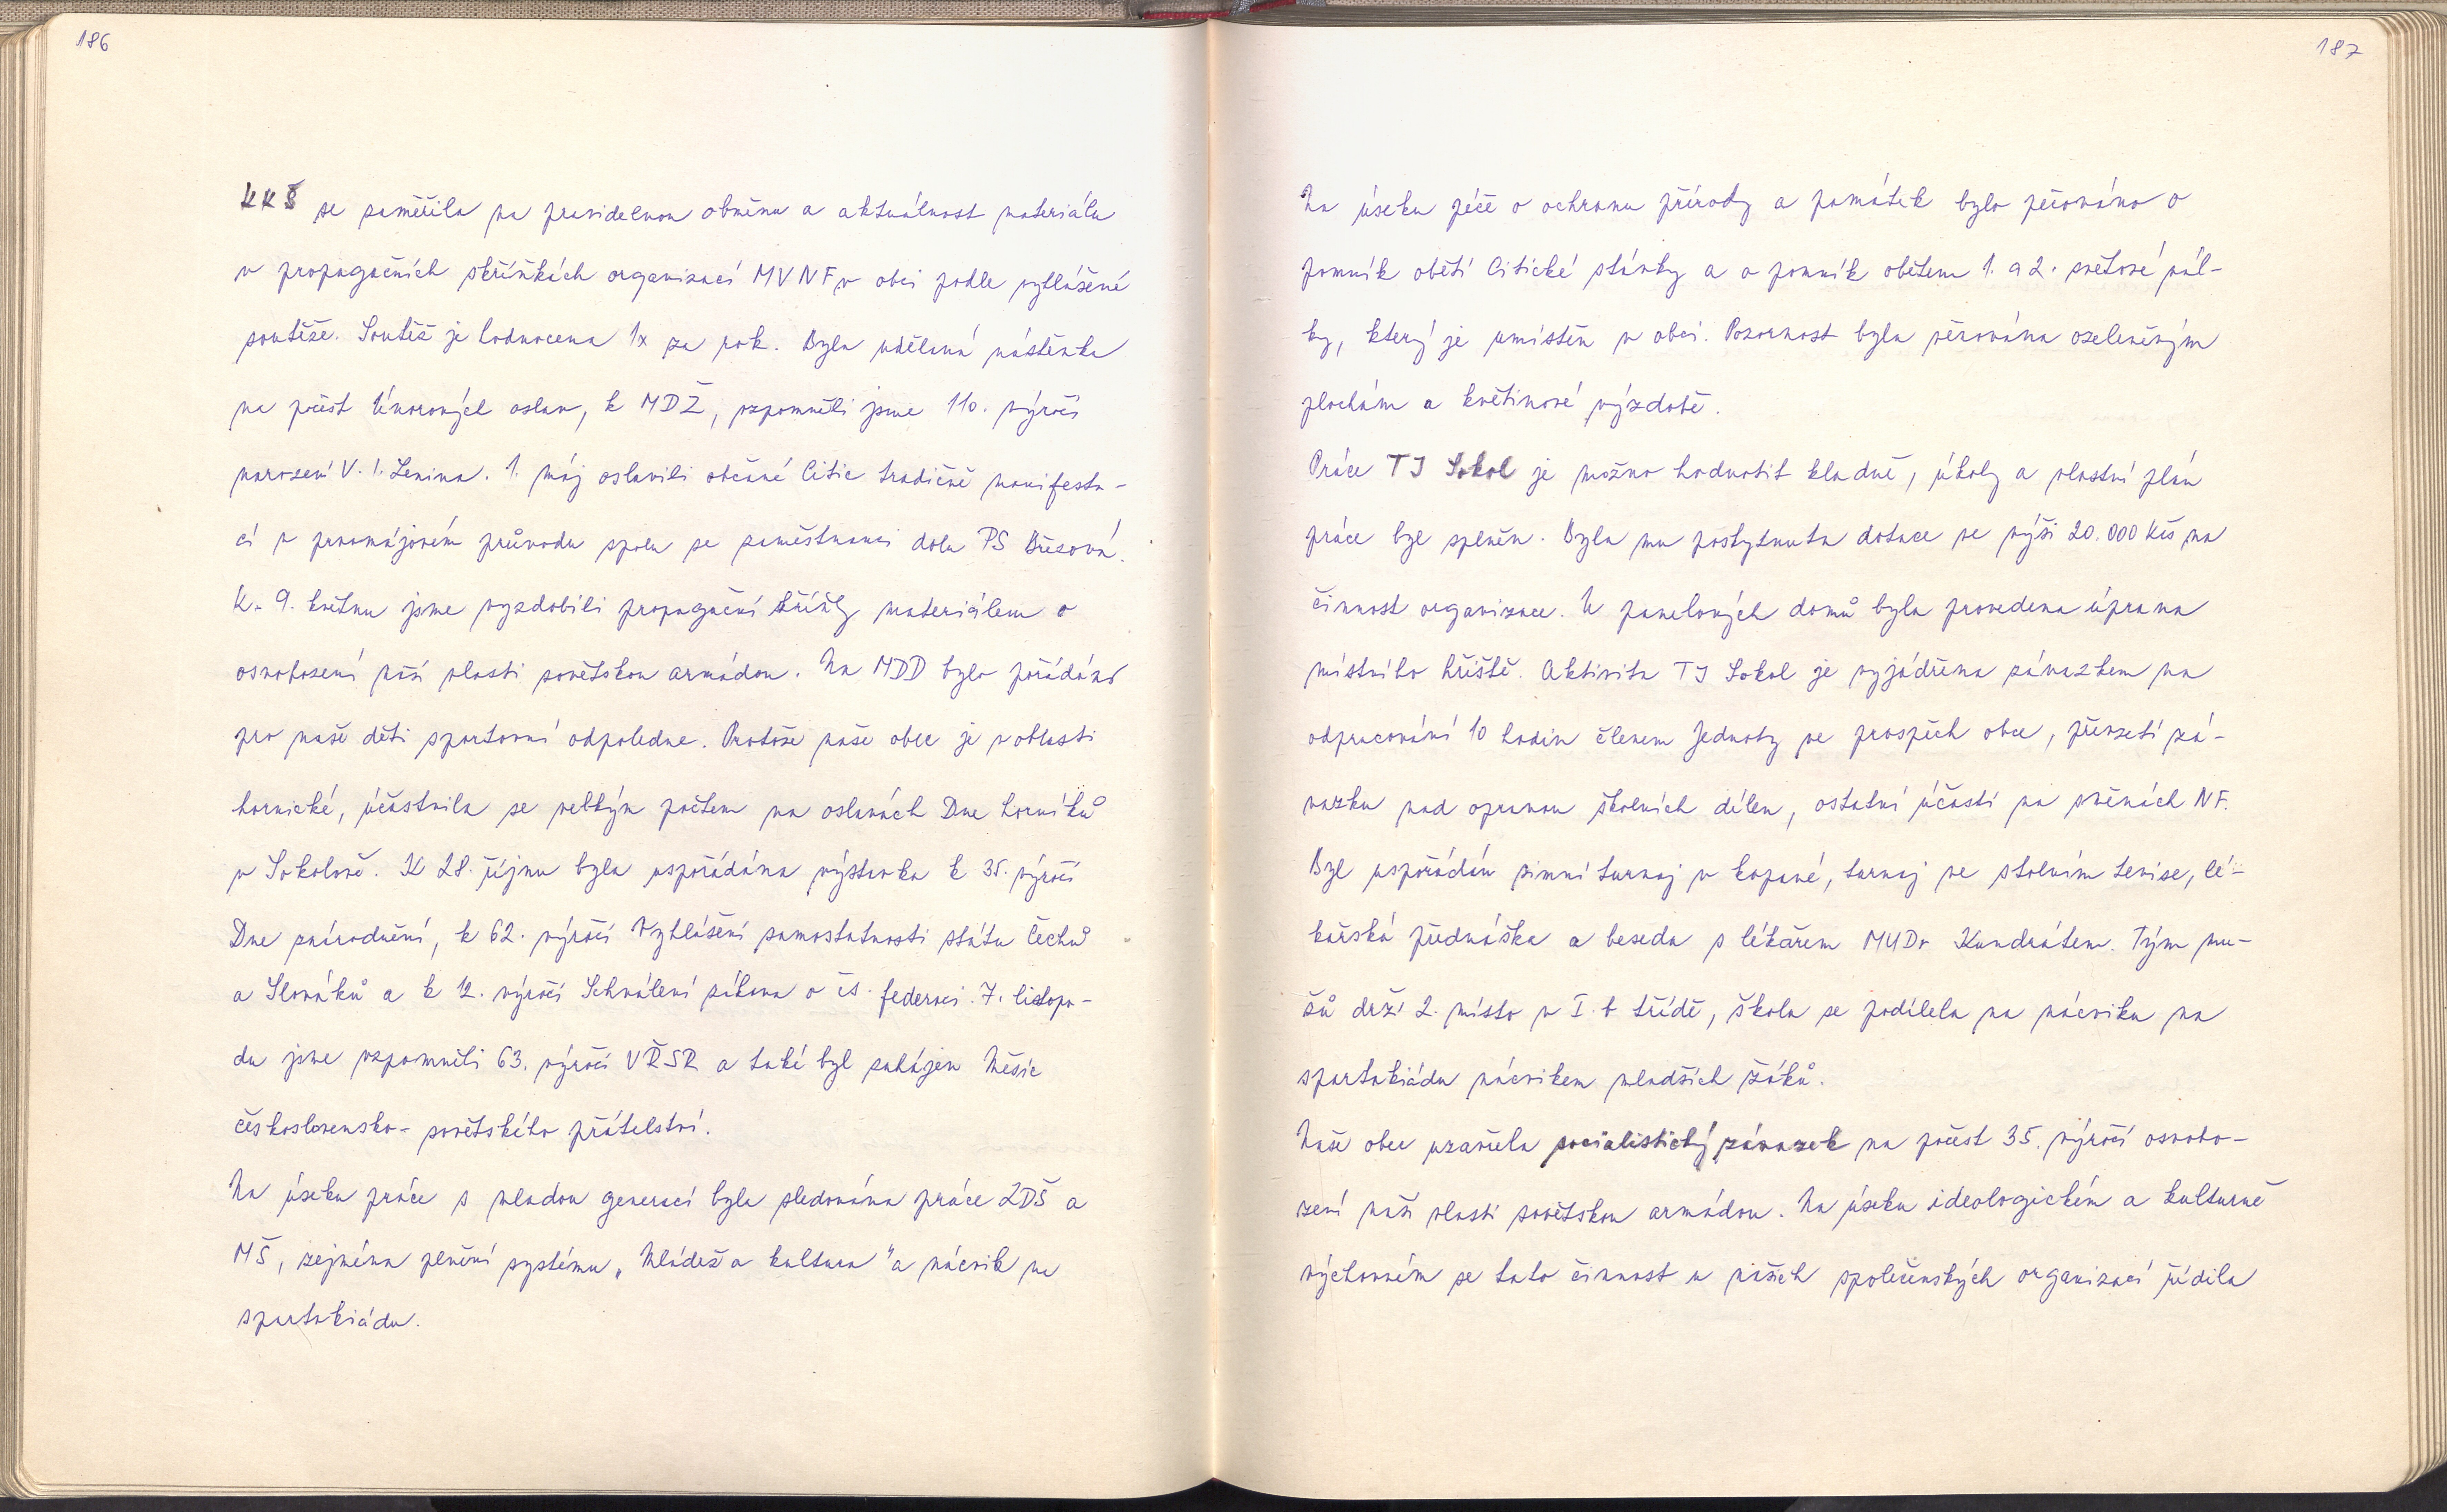 186
KKŠ se zaměřila na pravidelnou obměnu a aktuálnost materiálu
v propagačních skříňkách organizací MVNF v obci podle vyhlášené
soutěže. Soutěž je hodnocena 1x za rok. Byla udělaná nástěnka
na počest Únorových oslav, k MDŽ, vzpomněli jsme 110. výročí
narození V. I. Lenina. 1. máj oslavili občané Citic tradičně manifesta-
cí v prvomájovém průvodu spolu se zaměstnanci dolu PS Březová.
K 9. květnu jsme vyzdobili propagační skříňky materiálem o
osvobození naší vlasti sovětskou armádou. Na MDD bylo pořádáno
pro naše děti sportovní odpoledne. Protože naše obec je v oblasti
hornické, účastnila se velkým počtem na oslavách Dne horníků
v Sokolově. K 28. říjnu byla uspořádána výstavka k 35. výročí
Dne znárodnění, k 62. výročí Vyhlášení samostatnosti státu Čechů
a Slováků a k 12. výročí Schválení zákona o čs. federaci. 7. listopa-
du jsme vzpomněli 63. výročí VŘSR a také byl zahájen Měsíc
československo-sovětského přátelství.
Na úseku práce s mladou generací byla sledována práce ZDŠ a
MŠ, zejména plnění systému „Mládež a kultura" a nácvik na
spartakiádu.
187
Na úseku péče o ochranu přírody a památek bylo pečováno o
pomník obětí Citické stávky a o pomník obětem 1. a 2. světové vál-
ky, který je umístěn v obci. Pozornost byla věnována ozeleněným
plochám a květinové výzdobě.
Práce TJ Sokol je možno hodnotit kladně, úkoly a vlastní plán
práce byl splněn. Byla mu poskytnuta dotace ve výši 20.000 Kčs na
činnost organizace. U panelových domů byla provedena úprava
místního hřiště. Aktivita TJ Sokol je vyjádřena závazkem na
odpracování 10 hodin členem Jednoty ve prospěch obce, převzetí zá-
vazku nad opravou školních dílen, ostatní účasti na směnách NF.
Byl uspořádán zimní turnaj v kopané, turnaj ve stolním tenise, lé-
kařská přednáška a beseda s lékařem MUDr Kundrátem. Tým mu-
žů drží 2. místo v I. b třídě, škola se podílela na nácviku na
spartakiádu nácvikem mladších žáků.
Naše obec uzavřela socialistický závazek na počest 35. výročí osvobo-
zení naší vlasti sovětskou armádou. Na úseku ideologickém a kulturně
výchovném se tato činnost u našich společenských organizací řídila